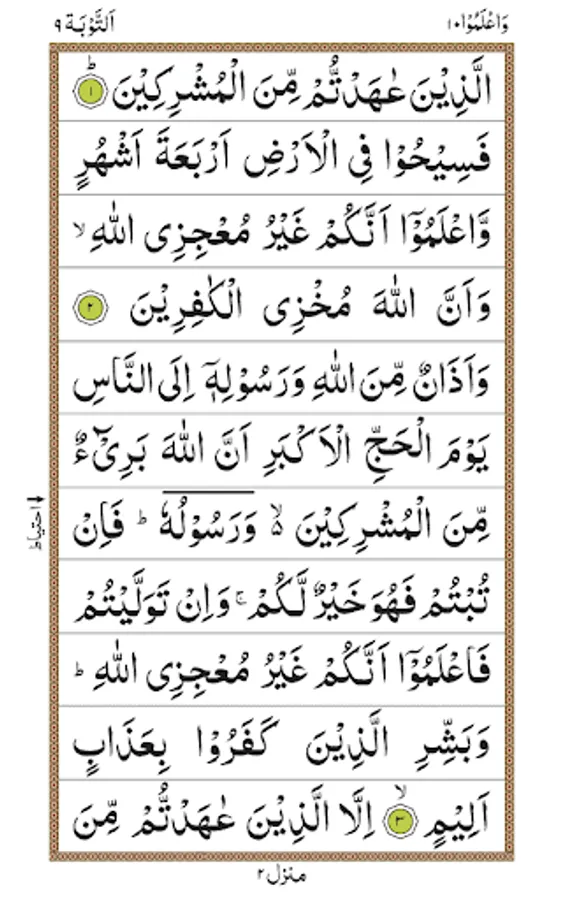 وَاعْلَمُوْا ١٠
اَلتَّوْبَة ٩
الَّذِيْنَ عٰهَدْتُّمْ مِّنَ الْمُشْرِكِيْنَ ؕ ١
فَسِيْحُوْا فِى الْاَرْضِ اَرْبَعَةَ اَشْهُرٍ
وَّاعْلَمُوْۤا اَنَّكُمْ غَيْرُ مُعْجِزِى اللّٰهِ ۙ
وَاَنَّ اللّٰهَ مُخْزِى الْكٰفِرِيْنَ ٢
وَاَذَانٌ مِّنَ اللّٰهِ وَرَسُوْلِهٖۤ اِلَى النَّاسِ
يَوْمَ الْحَجِّ الْاَكْبَرِ اَنَّ اللّٰهَ بَرِىْٓءٌ
مِّنَ الْمُشْرِكِيْنَ ۙ۬ وَرَسُوْلُهٗ ؕ فَاِنْ
احتیاط
تُبْتُمْ فَهُوَ خَيْرٌ لَّكُمْ ۚ وَاِنْ تَوَلَّيْتُمْ
فَاعْلَمُوْۤا اَنَّكُمْ غَيْرُ مُعْجِزِى اللّٰهِ ؕ
وَبَشِّرِ الَّذِيْنَ كَفَرُوْا بِعَذَابٍ
اَلِيْمٍ ۙ ٣ اِلَّا الَّذِيْنَ عٰهَدْتُّمْ مِّنَ
منزل ٢